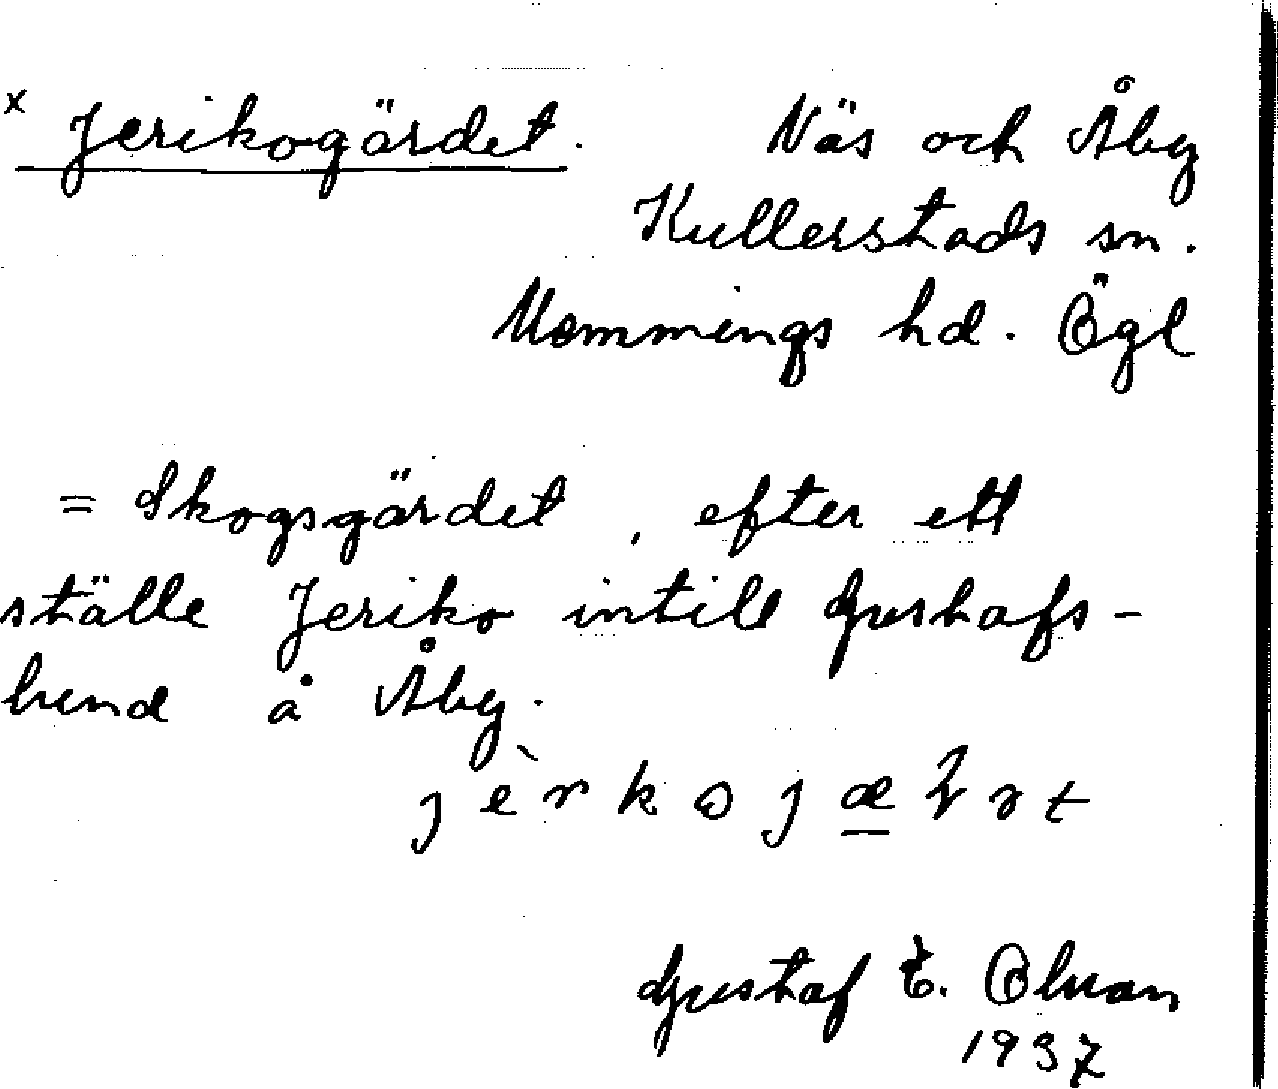 x Jerikogärdet. Näs och Åby
Kullerstads sn.
Memmings hd. Ögl
= Skogsgärdet, efter ett
ställe Jeriko intill Gustafs-
lund å Åby.
Gustaf E. Olsson
1937